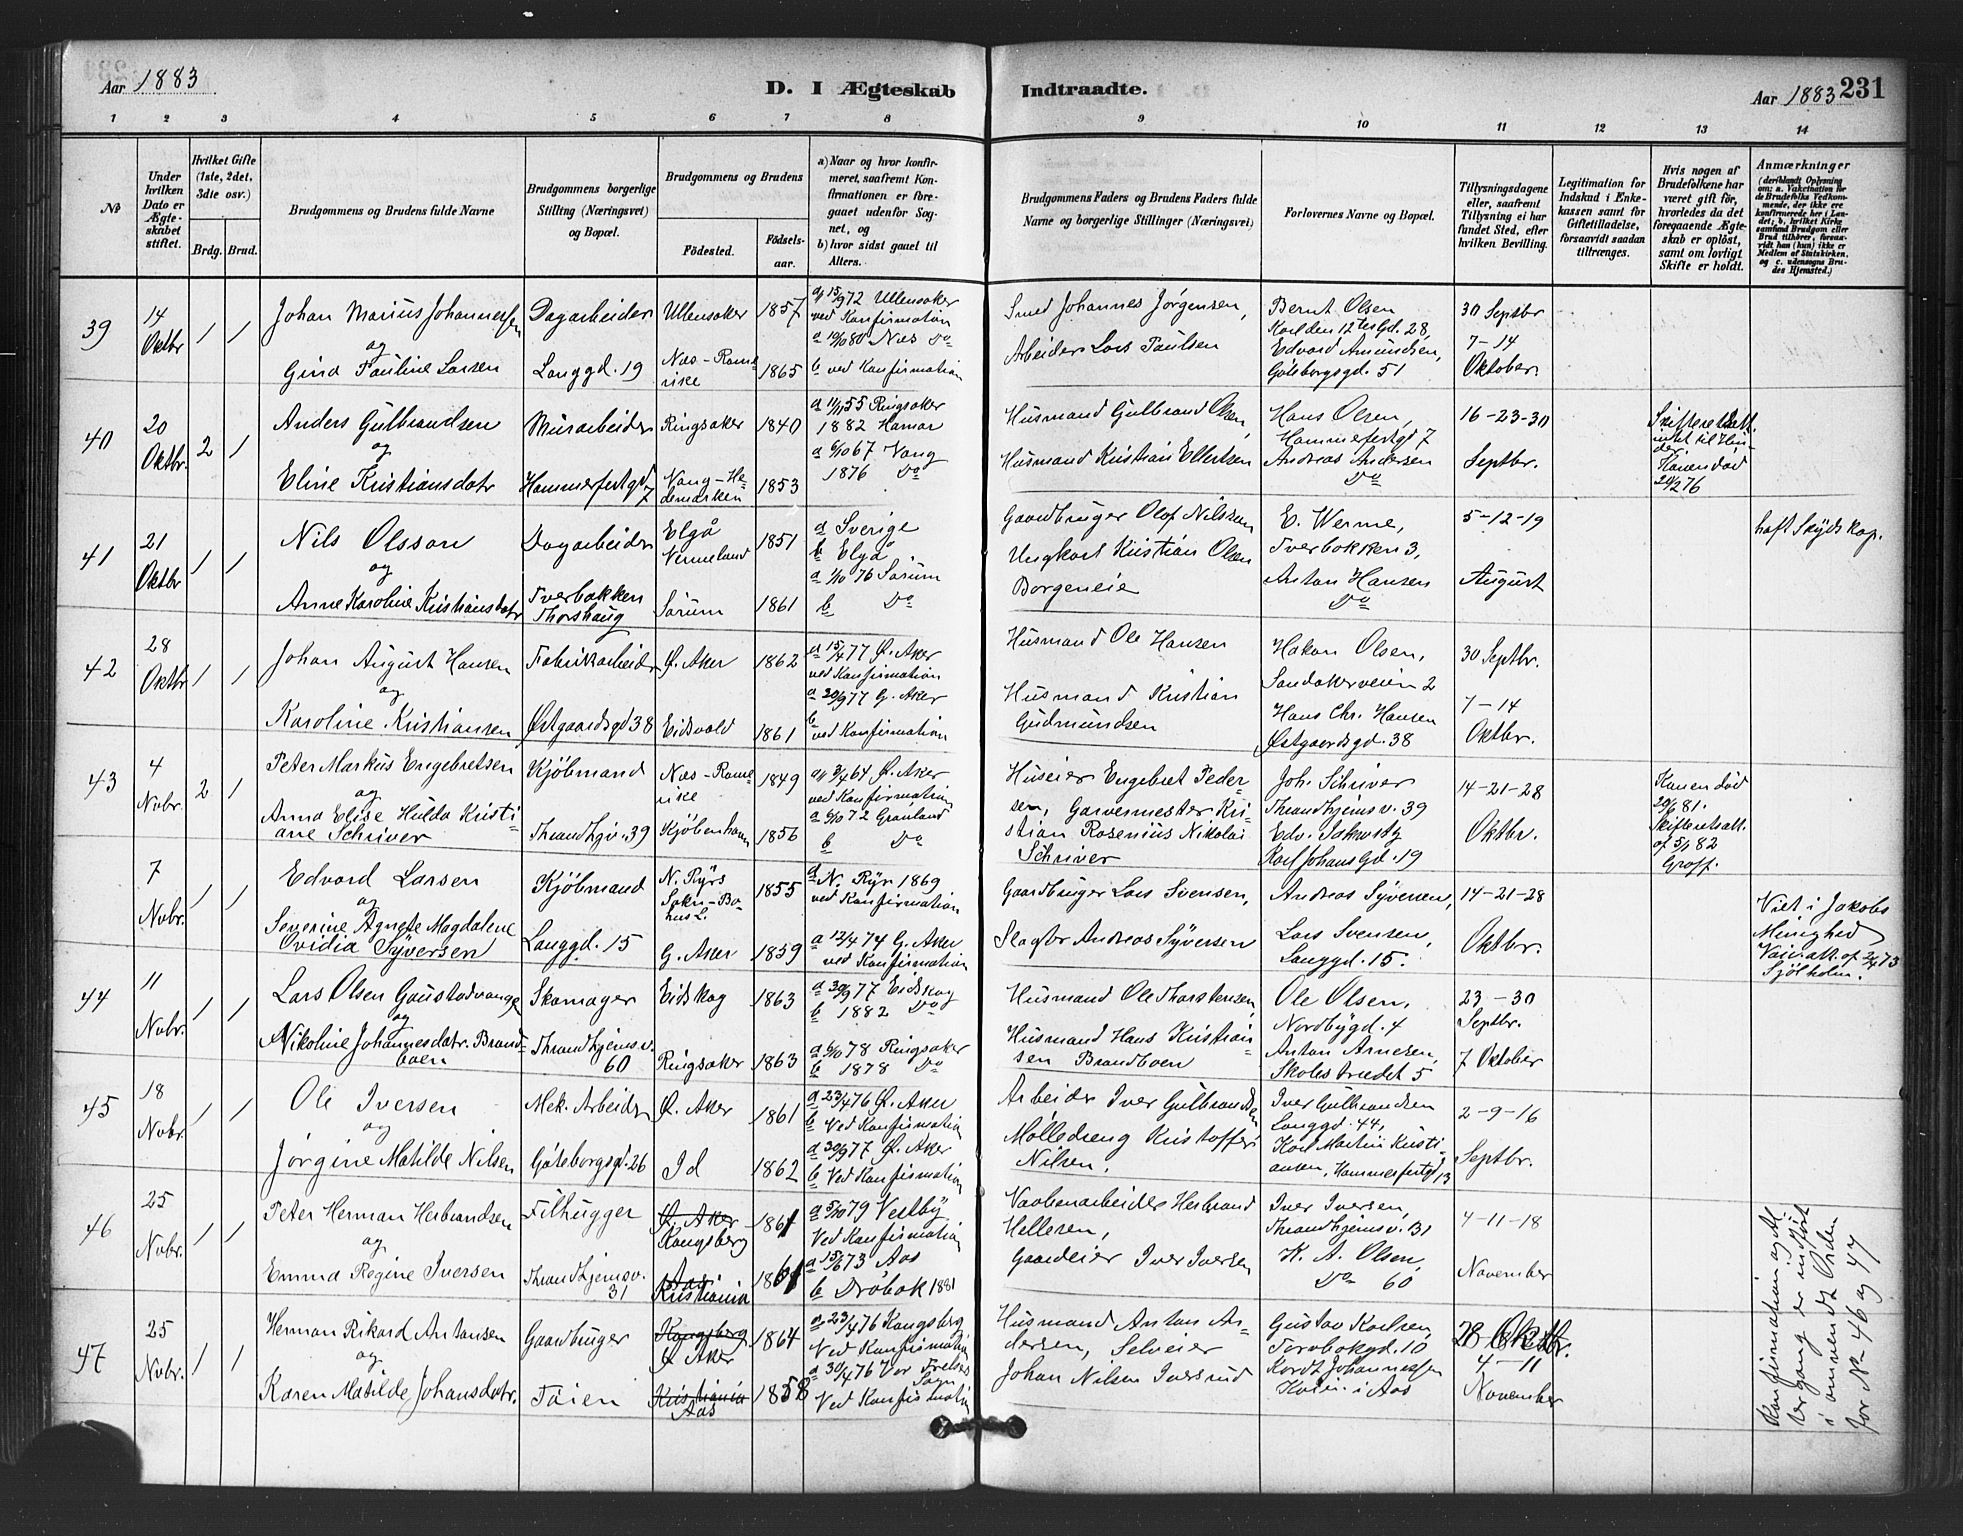 Aar 1883
D. I Ægteskab Indtraadte.
Aar 1883 231
1 2 3 4 5 6 7 8 9 10 11 12 13 14
№
Under hvilken Dato er Ægteskabet stiftet.
Hvilket Gifte (1ste, 2det, 3die osv.)
Brdg. Brud.
Brudgommens og Brudens fulde Navne
Brudgommens borgerlige Stilling (Næringsvei) og Bopæl.
Brudgommens og Brudens
Fødested.
Fødselsaar.
a) Naar og hvor konfirmeret, saafremt Konfirmationen er foregaaet udenfor Sognet, og
b) hvor sidst gaaet til Alters.
Brudgommens Faders og Brudens Faders fulde Navne og borgerlige Stillinger (Næringsvei)
Forlovernes Navne og Bopæl.
Tillysningsdagene eller, saafremt Tillysning ei har fundet Sted, efter hvilken Bevilling.
Legitimation for Indskud i Enkekassen samt for Giftetilladelse, forsaavidt saadan tiltrænges.
Hvis nogen af Brudefolkene har været gift før, hvorledes da det foregaaende Ægteskab er opløst, samt om lovligt Skifte er holdt.
Anmærkninger
(deriblandt Oplysning om: a. Vaccination for de Brudefolks Vedkommende, der ikke ere konfirmerede her i Landet; b. hvilket Kirkesamfund Brudgom eller Brud tilhører, forsaavidt han (hun) ikke er Medlem af Statskirken, og c. udensogns Brudes Hjemsted.)
39 14 Oktbr 1 1
Johan Marius Johannessen
og
Gina Pauline Larsen
Dagarbeider
Langgd. 19
Ullensaker 1857
Næs-Romerike 1865
a 15/9 72 Ullensaker
ved Konfirmation
a 10/10 80 Næs Do
b ved Konfirmation
Smed Johannes Jørgensen,
Arbeider Lars Paulsen
Bernt Olsen
Karl den 12tes Gd. 28,
Edvard Amundsen,
Göteborgsgd. 51
30 Septbr
7-14
Oktober.
40 20 Oktbr. 2 1
Anders Gulbrandsen
og
Eline Kristiansdatr
Murarbeider
Hammerfestgd. 7
Ringsaker 1840
Vang-Hedemarken 1853
a 11/11 55 Ringsaker
1882 Hamar
a 6/10 67 Vang
1876 Do
Husmand Gulbrand Olsen,
Husmand Kristian Ellertsen
Hans Olsen,
Hammerfestgd 7
Andreas Andersen
Do
16-23-30
Septbr.
Skifteret att.
intet til Hinder.
Konen død
20/2 76
41 21 Oktbr 1 1
Nils Olsson
og
Anne Karoline Kristiansdatr
Dagarbeider
Tverbakken
Thorshaug
Elgå
Vermeland 1851
Sørum 1861
a Sverige
b Elgå
a 1/10 76 Sørum
b Do
Gaardbruger Olof Nilsson
Ungkarl Kristian Olsen
Borgeneie
E. Werme,
Tverbakken 3,
Anton Hansen
Do
5-12-19
August
haft Skydskop.
42 28 Oktbr 1 1
Johan August Hansen
og
Karoline Kristiansen
Fabrikarbeider
Østgaardsgd 38
Ø. Aker 1862
Eidsvold 1861
a 15/4 77 Ø. Aker
ved Konfirmation
a 30/9 77 G. Aker
b
ved Konfirmation
Husmand Ole Hansen
Husmand Kristian
Gudmundsen
Hakon Olsen,
Sandakerveien 2
Hans Chr. Hansen
Østgaardsgd. 38
30 Septbr.
7-14
Oktbr.
43 4 Nvbr. 2 1
Peter Markus Engebretsen
og
Anna Elise Hulda Kristiane Schriver
Kjøbmand
Thrandhjv. 39
Næs-Romerike 1849
Kjøbenhavn 1856
a 3/4 64 Ø. Aker
ved Konfirmation
a 6/10 72 Grønland
b Do
Huseier Engebret Pedersen, Garvermester Kristian Rosenius Nikolai
Schriver
Joh. Schriver
Thrandhjems v. 39
Edv.
Karl Johans Gd. 19
14-21-28
Oktbr.
Konen død
29/6 81.
Skifteretsatt.
af 5/1 82
Groff.
7 Nvbr. 1 1
Edvard Larsen
og
Severine Agnete Magdalene
Ovidia Syversen
Kjøbmand
Langgd. 15
N. Ryrs
Sokn-Bohus L. 1855
G. Aker 1859
a N. Ryr 1869
ved Konfirmation
a 12/4 74 G. Aker
ved Konfirmation
Gaardbruger Lars Svensen,
Slagter Andreas Syversen
Andreas Syversen,
Lars Svensen,
Langgd. 15.
14-21-28
Oktbr.
Viet i Jakobs
Menighed
Vac. att. af 2/4 73
Sjøholm.
44 11 Nvbr. 1 1
Lars Olsen Gaustadvangen
og
Nikoline Johannesdatr. Brandboen
Skomager
Thrandhjems v.
60
Eidskog 1863
Ringsaker 1863
a 30/9 77 Eidskog
b 1882 Do
a 6/10 78 Ringsaker
b 1878 Do
Husmand Ole Thorstensen,
Husmand Hans Kristiansen Brandboen
Ole Olsen,
Nordbygd. 4
Anton Arnesen,
Skolestrædet 5
23-30
Septbr.
7 Oktober
45 18 Nvbr. 1 1
Ole Iversen
og
Jørgine Matilde Nilsen
Mek. Arbeider
Göteborgsgd. 26
Ø. Aker 1861
Id 1862
a 23/4 76 Ø. Aker
b Ved Konfirmation
a 30/9 77 Ø. Aker
b Ved Konfirmation
Arbeider Iver Gulbrandsen
Mølledreng Kristoffer
Nilsen.
Iver Gulbrandsen
Langgd. 44,
Karl Martin Kristiansen, Hammerfestgd 13
2-9-16
Septbr.
46 25 Nvbr. 1 1
Peter Herman Herbrandsen
og
Emma Regine Iversen
Filhugger
Thrandhjemsv.
31
Ø. Aker
Kongsberg 1861
Aas
Kristiania 1861
a 5/10 79 Vestby
Ved Konfirmation
a 15/6 73 Aas
b Drøbak 1881
Vaabenarbeider Herbrand
Hellesen,
Gaardeier Iver Iversen
Iver Iversen,
Thrandhjems v. 31
K. A. Olsen,
Do 60
4-11-18
November
47 25 Nvbr. 1 1
Herman Rikard Antonsen
og
Karen Matilde Johansdatr.
Gaardbruger
Tøien
Kongsberg
Ø Aker 1864
Kristiania
Aas 1858
a 23/4 76 Kongsberg
Ved Konfirmation
a 30/4 76 Vor Frelsers
Ved Konfirmation
Husmand Anton Andersen, Selveier
Johan Nilsen Iversrud
Gustav Karlsen
Torvbakgd. 10
Kordt Johannessen
i Aas
28 Oktbr.
4-11
November
Konfirmation og Altergang er indført
i omvendt Orden
for No 46 og 47